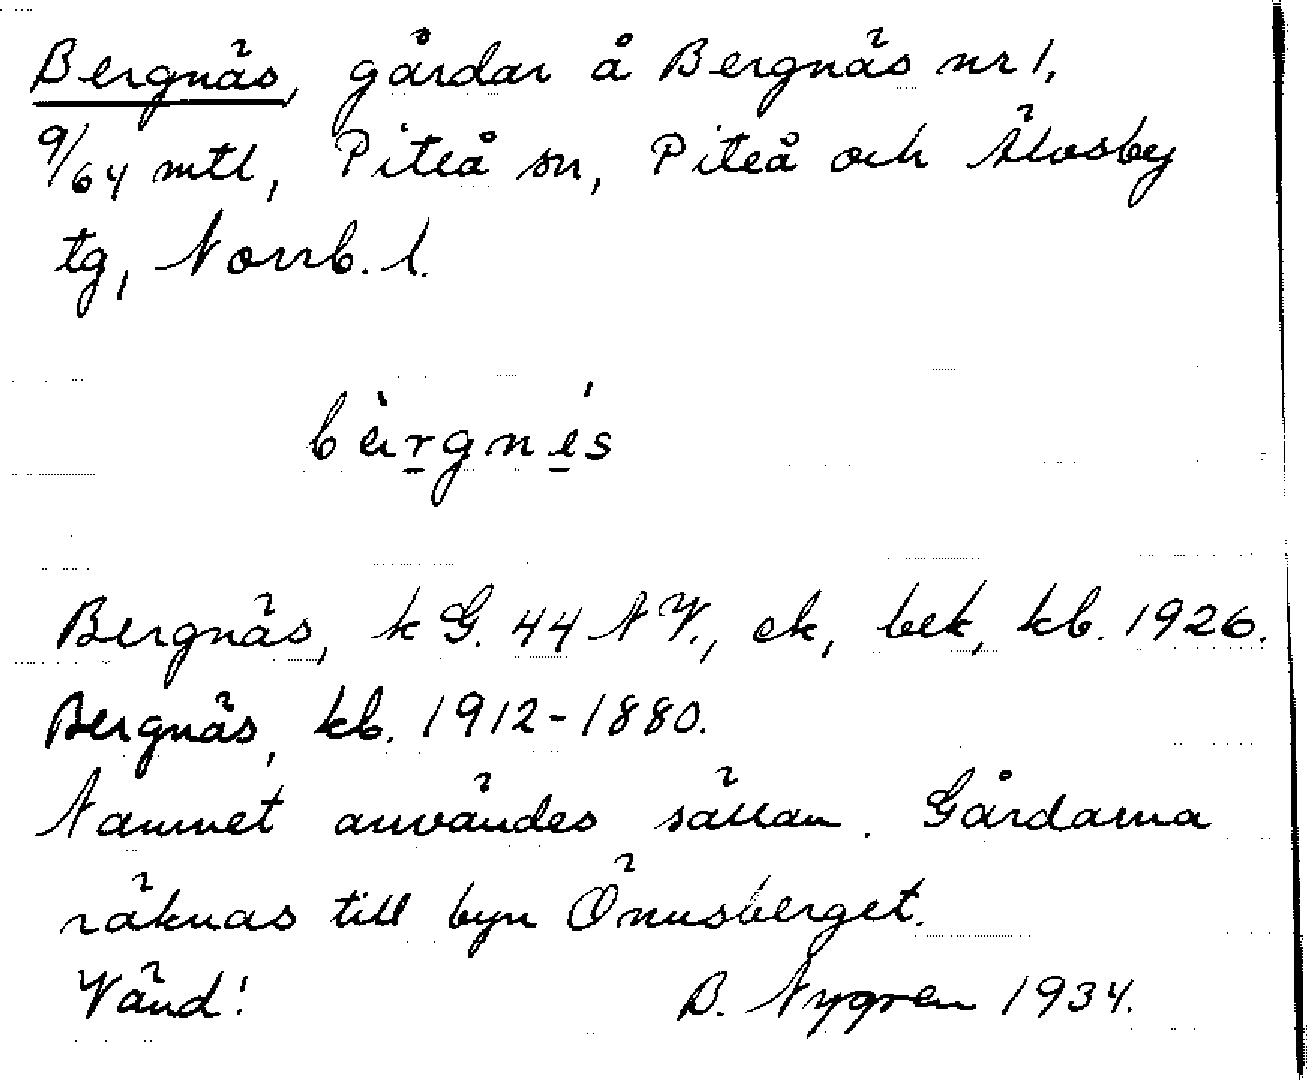 Bergnäs, gårdar å Bergnäs nr 1,
9/64 mtl, Piteå sn, Piteå och Älvsby
tg, Norrb. l.
bèrgnés
Bergnäs, k G. 44 N V., ek, bek, kb. 1926.
Bergnäs, kb. 1912-1880.
Namnet användes sällan. Gårdarna
räknas till byn Önusberget.
Vänd! B. Nygren 1934.